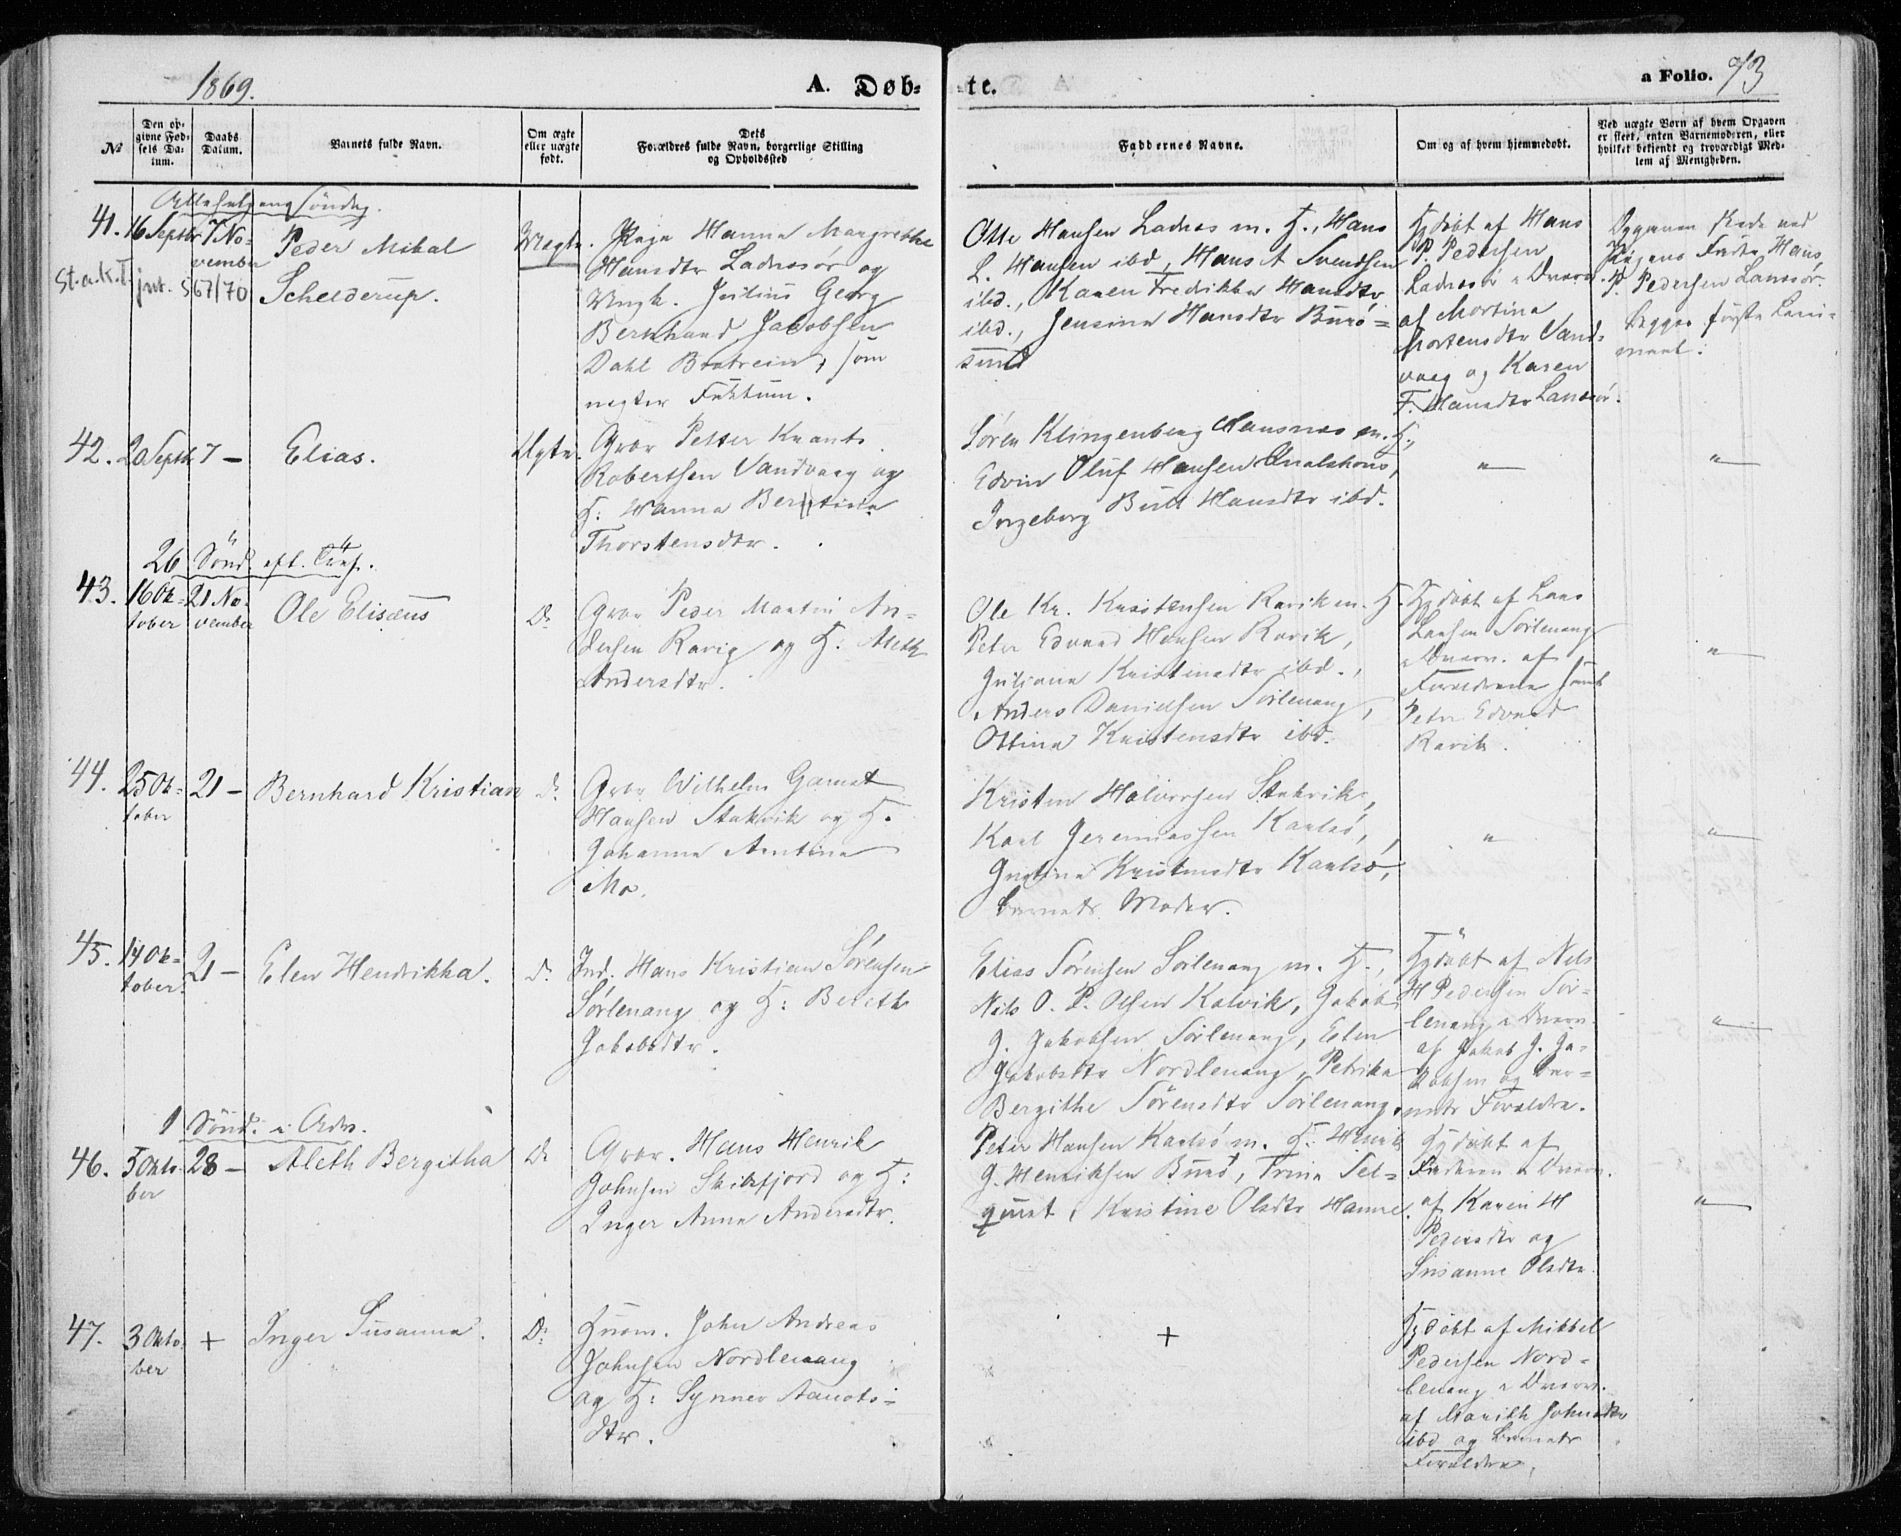 1869.
A. Døb-
te.
a Folio. 73
№
Den op-
givne Fød-
sels Da-
tum.
Daabs
Datum.
Barnets fulde Navn.
Om ægte
eller uægte
født.
Dets
Forældres fulde Navn, borgerlige Stilling
og Opholdssted
Faddernes Navne.
Om og af hvem hjemmedøbt.
Ved uægte Børn af hvem Opgaven
er skeet, enten Barnemoderen, eller
hvilket bekjendt og troværdigt Med-
lem af Menigheden.
Allehelgens Søndag.
41.
16 Septbr
7 No-
vember
St.a.k.I jnt. 567/70
Peder Mikal
Schelderup.
Uægte.
Pige Hanna Margrethe
Hansdtr Ladnesør og
Ungk. Julius Georg
Bernhard Jacobsen
Dahl som
negter
Otte Hansen Ladnes m. K., Hans
L. Hansen ibd., Hans A Svendsen
ibd., Karen Fredrikke Hansdtr
ibd., Jensine Hansdtr Burø-
sund
Hjdøbt af Hans
P. Pedersen
Ladnesør i Overv.
af Mortine
Mortensdtr Vand-
vaag og Karen
F. Hansdtr Lanesør.
Opgaven skede ved
Pigens Fader Hans
P. Pedersen Lanesør.
Begges første Leier-
maal.
42.
20 Septbr
7 —
Elias.
Ægte.
Gbr Petter Krants
Robertsen Vandvaag og
K: Hanna Berntine
Thorstensdtr.
Søren Klingenberg Hansnes m. K.,
Edvin Oluf Hansen
Ingeborg Hansdtr ibd.
"
"
26 Sønd. eft. Tref.
43.
16 Ok-
tober
21 No-
vember
Ole Elisæus
Do
Gbr Peder Martin An-
dersen Ravig og K: Aleth
Andersdtr.
Ole Kr. Kristensen Ravik m. K.
Peter Edvard Hansen Ravik,
Juliane Kristensdtr ibd.,
Anders Danielsen Sørlenang,
Ottine Kristensdtr ibd.
Hjdøbt af Lars
Larsen Sørlenang
i Overv. af
Forældrene samt
Peter Edvard
Ravik.
"
44.
25 Ok-
tober
21 —
Bernhard Kristian
do
Gbr Wilhelm Gamst
Hansen Stakvik og K.
Johanna Arntine
Mo.
Kristen Halvorsen Stakvik,
Karl Jeremiassen Karlsø,
Justine Kristensdtr Karlsø,
Barnets Moder.
"
"
45.
14 Ok-
tober.
21 —
Elen Hendrikka.
do
Ind. Hans Kristian Sørensen
Sørlenang og K: Bereth
Jakobsdtr.
Elias Sørensen Sørlenang m. K.,
Nils O. P. Olsen Kalvik, Jakob
J. Jakobsen Sørlenang, Elen
Jakobsdtr Nordlenang, Petrika
Bergithe Sørensdtr Sørlenang.
Hjdøbt af Nils
H Pedersen Sør-
lenang i Overv.
af Jakob J. Ja-
kobsen og Bar-
nets Forældre.
"
1 Sønd. i Adv.
46.
5 Okto-
ber
28 —
Aleth Bergitha
Do
Gbr. Hans Henrik
Johnsen Skibsfjord og K:
Inger Anna Andersdtr.
Peter Hansen Karlsø m. K. Henrik
J. Henriksen Burø, Trine Sel-
quist, Kristine Olsdtr Hamre.
Hjdøbt af
Faderen i Overv.
af Karen H
Pedersdtr og
Susanne Olsdtr.
"
47.
3 Okto-
ber
+
Inger Susanna.
Do
Husm. John Andreas
Johnsen Nordlenang
og K: Synnev
dtr.
+
Hjdøbt af Mikkel
Pedersen Nord-
lenang i Overv.
af Marith Johnsdtr
ibd og Barnets
Forældre.